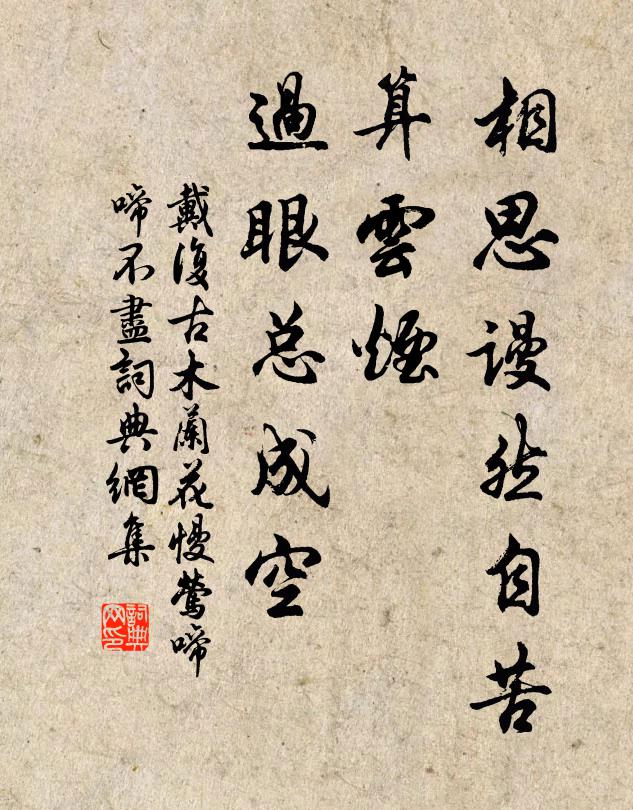 相思謾然自苦
算雲煙
過眼总成空
戴復古木蘭花慢鶯啼
啼不盡詞典網集
詞典網印